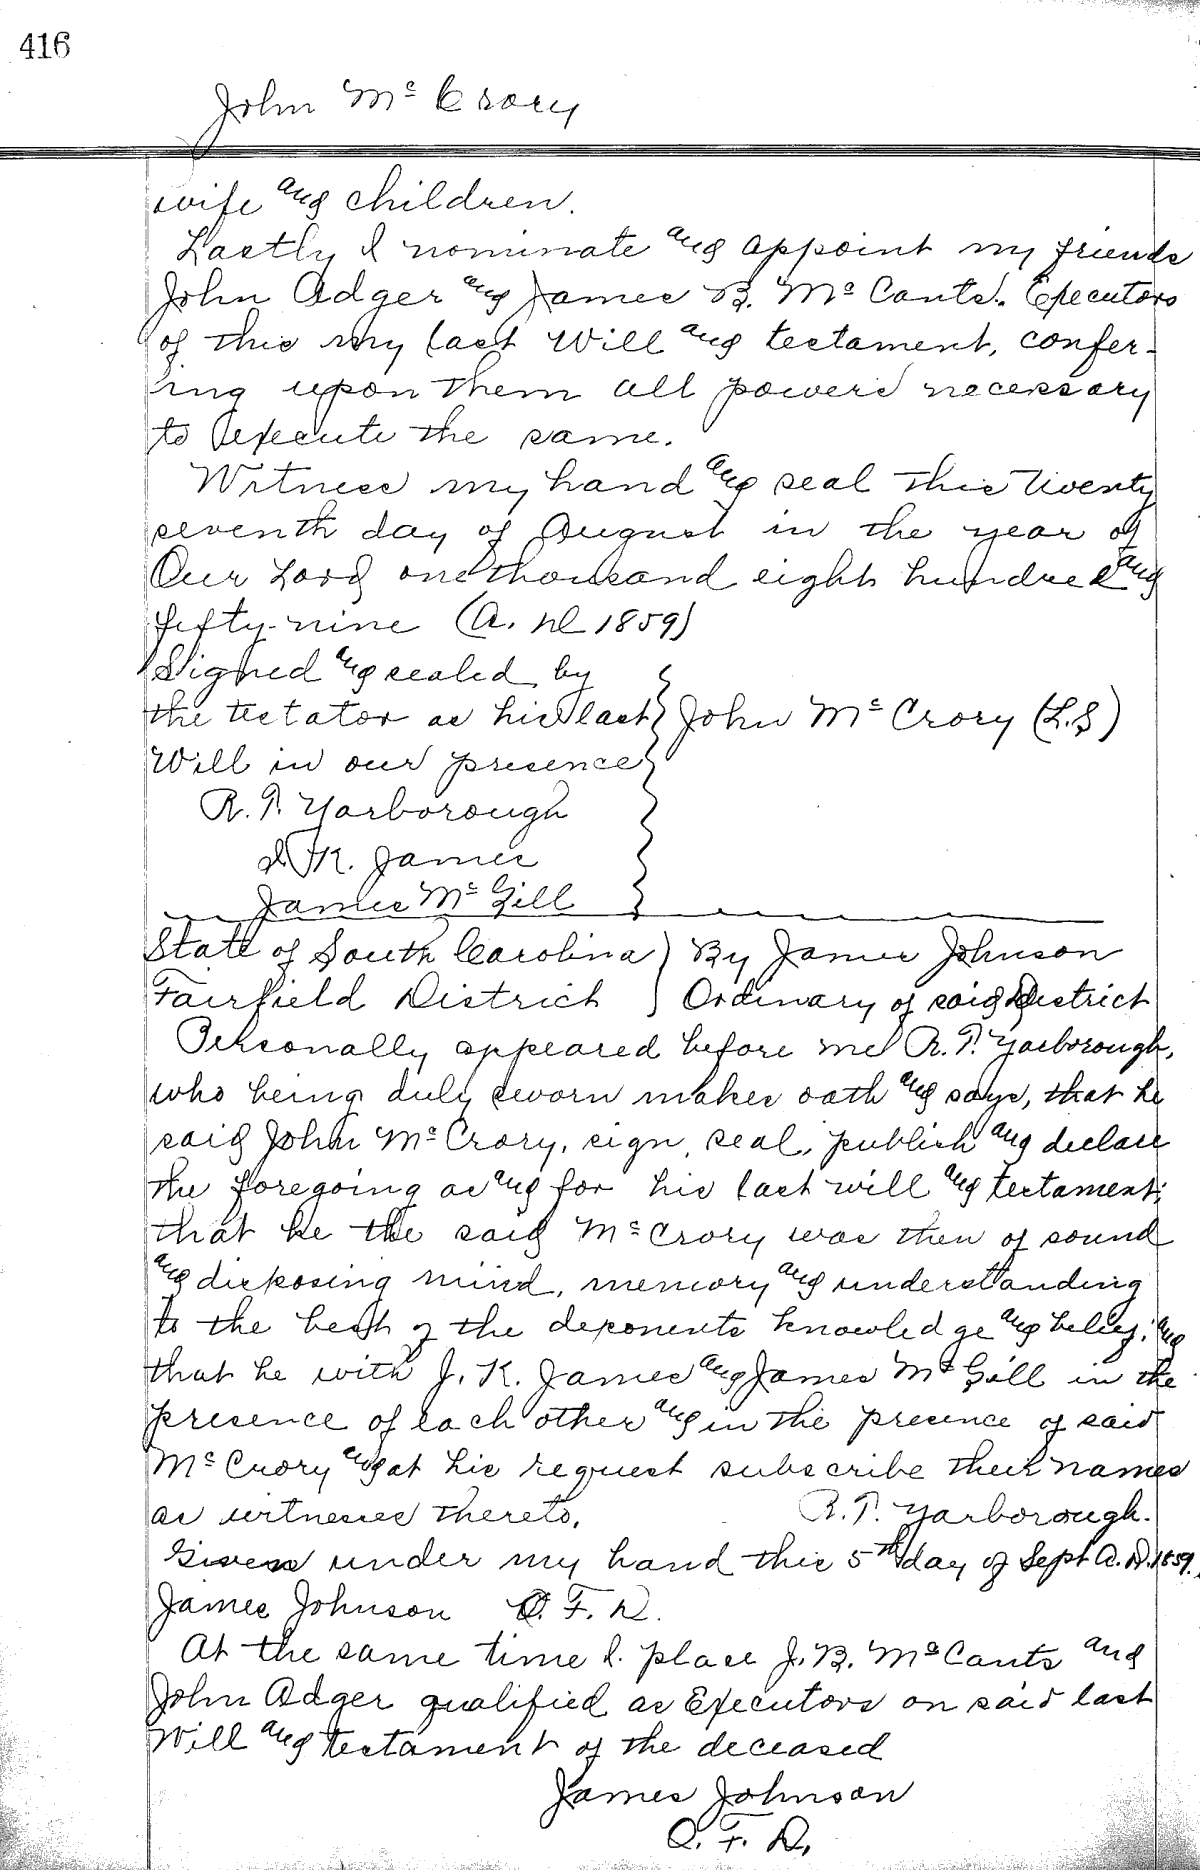 416
John Mc Crory
wife and children.
Lastly I nominate and appoint my friends
John Adger and James B. McCants. Executors
of this my last Will and testament, confer-
ing upon them all powers necessary
to execute the same.
Witness my hand and seal this Twenty
seventh day of August in the year of
Our Lord one thousand eight hundred and
fifty-nine (A. D 1859)
Signed and sealed by
the testator as his last
Will in our presence
John McCrory (L.S)
R. T. Yarborough
J. K. James
James McGill
State of South Carolina ) By James Johnson
Fairfield District ) Ordinary of said District
Personally appeared before me R. T. Yarborough,
who being duly sworn makes oath and says, that he
said John McCrory, sign, seal, publish and declare
the foregoing as and for his last will and testament;
that he the said McCrory was then of sound
and disposing mind, memory and understanding
to the best of the deponents knowledge and belief; and
that he with J. K. James and James McGill in the
presence of each other and in the presence of said
McCrory and at his request subscribe their names
as witnesses thereto.
R. T. Yarborough.
Given under my hand this 5th day of Sept A. D. 1859.
James Johnson O. F. D.
At the same time & place J. B. McCants and
John Adger qualified as Executors on said last
Will and testament of the deceased
James Johnson
O. F. D.